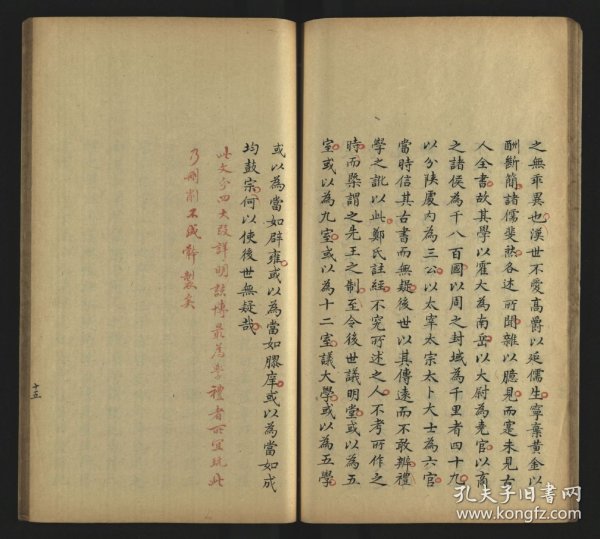 之無乖異也漢世不愛高爵以延儒生寧棄黃金以
酬斷簡諸儒斐然各述所聞雜以臆見而寔未見古
人全書故其學以霍太為南岳以大尉為堯官以商
之諸侯為千八百國以周之封域為千里者四十九
以分陝處內為三公以太宰太宗太卜大士為六官
當時信其古書而無疑後世以其傳遠而不敢辨禮
學之訛以此鄭氏註經不究所述之人不考所作之
時而槩謂之先王之制至令後世議明堂或以為五
室或以為九室或以為十二室議大學或以為五學
或以為當如辟雍或以為當如膠庠或以為當如成
均鼓宗何以使後世無疑哉
此文分四大段詳明該博最為學禮者所宜玩此
乃刪削不成幹製矣
十五
孔夫子旧书网
www.kongfz.com